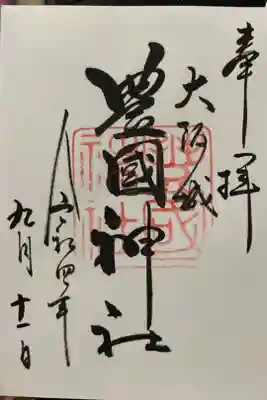 奉拝
大阪城
豊國神社
令和四年
九月十一日